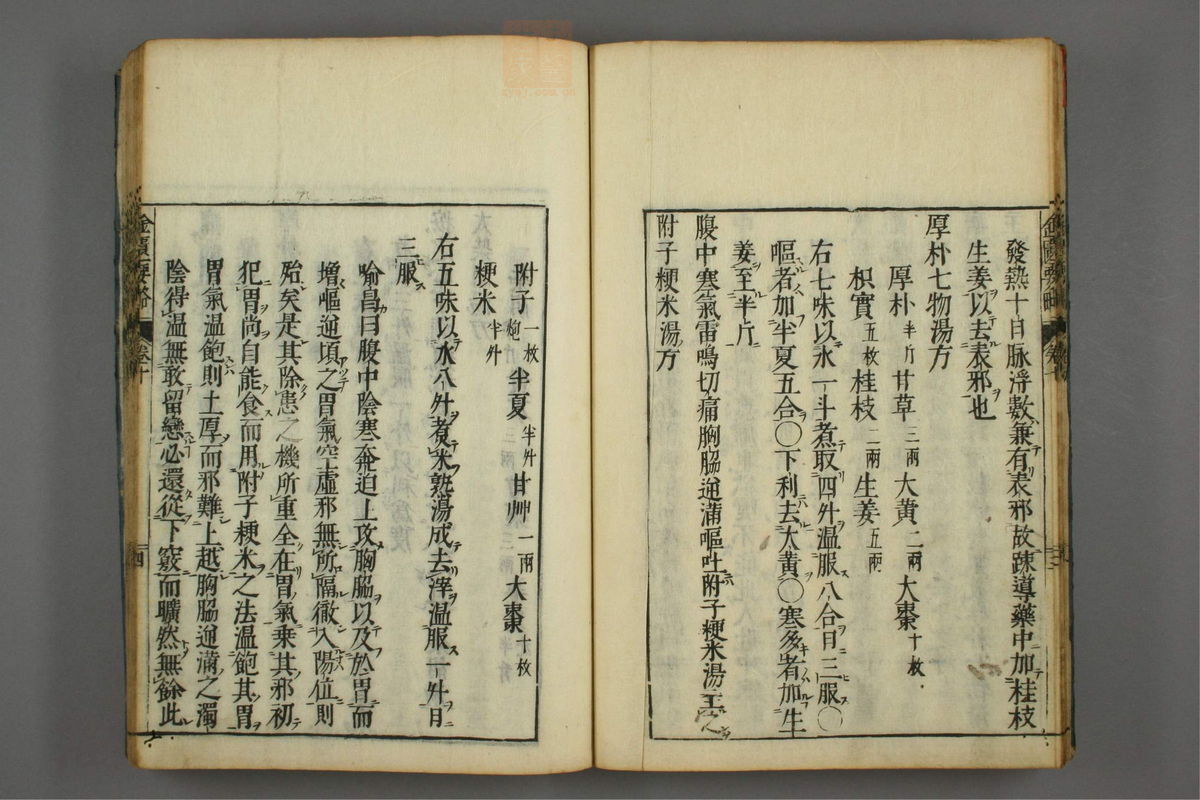 發熱十日脉浮數兼有表邪故踈導藥中加桂枝
生姜以去表邪也
厚朴七物湯方
厚朴半斤 甘草三兩 大黄二兩 大棗十枚
枳實五枚 桂枝二兩 生姜五兩
右七味以水一斗煮取四升温服八合日三服〇
嘔者加半夏五合〇下利去大黄〇寒多者加生
姜至半斤
腹中寒氣雷鳴切痛胸脇逆滿嘔吐附子粳米湯主
附子粳米湯方
附子一枚炮 半夏半升 甘艸一兩 大棗十枚
粳米半升
右五味以水八升煮米熟湯成去滓温服一升日
三服
喻昌曰腹中陰寒奔迫上攻胸脇以及於胃而
增嘔逆頃之胃氣空虛邪無所隔徹入陽位則
殆矣是其除患之機所重全在胃氣乘其邪初
犯胃尚自能食而用附子粳米之法温飽其胃
胃氣温飽則土厚而邪難上越胸脇逆滿之濁
陰得温無敢留戀必還從下竅而曠然無餘此
金匱要畧 卷十 四